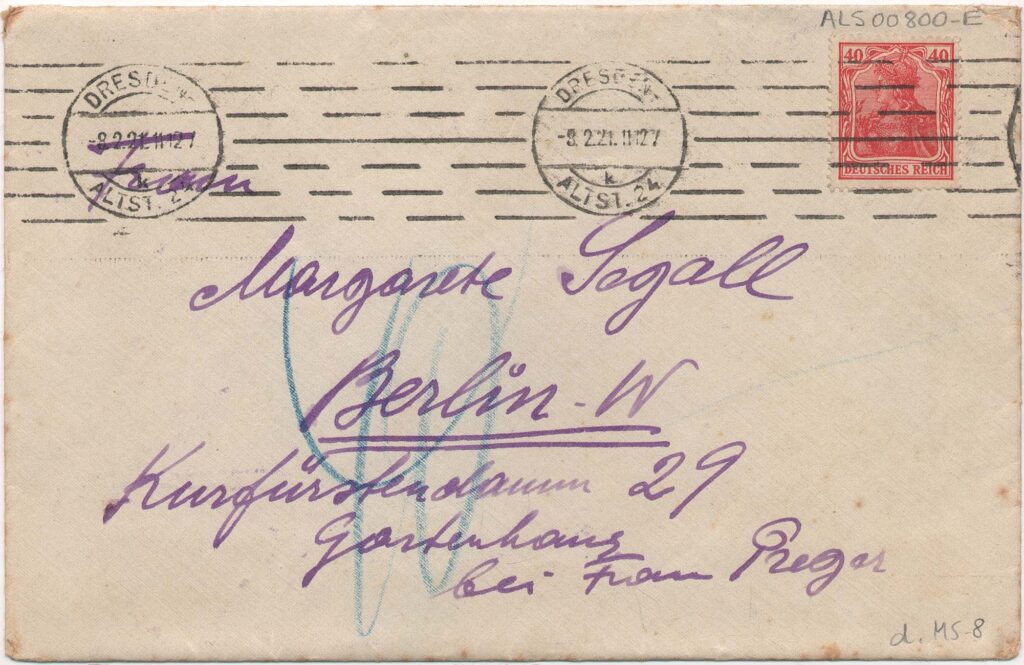 ALS00800-E
40 40
DEUTSCHES REICH
DRESDEN
-8.2.21.11-12 7
k
ALTST. 24
DRESDEN
-8.2.21.11-12 7
k
ALTST. 24
Frau
Margarete Segall
Berlin-W
Kurfürstendamm 29
Gartenhaus
bei Frau Preger
d. MS-8